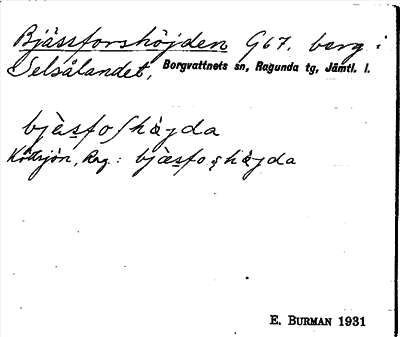 Bjässforshöjden G67. berg i
Selsålandet, Borgvattnets sn, Ragunda tg, Jämtl. l.
bjæ̀sfoʃhǻjda
Köttsjön, Rag.: bjæsfoʂhǻjda
E. BURMAN 1931